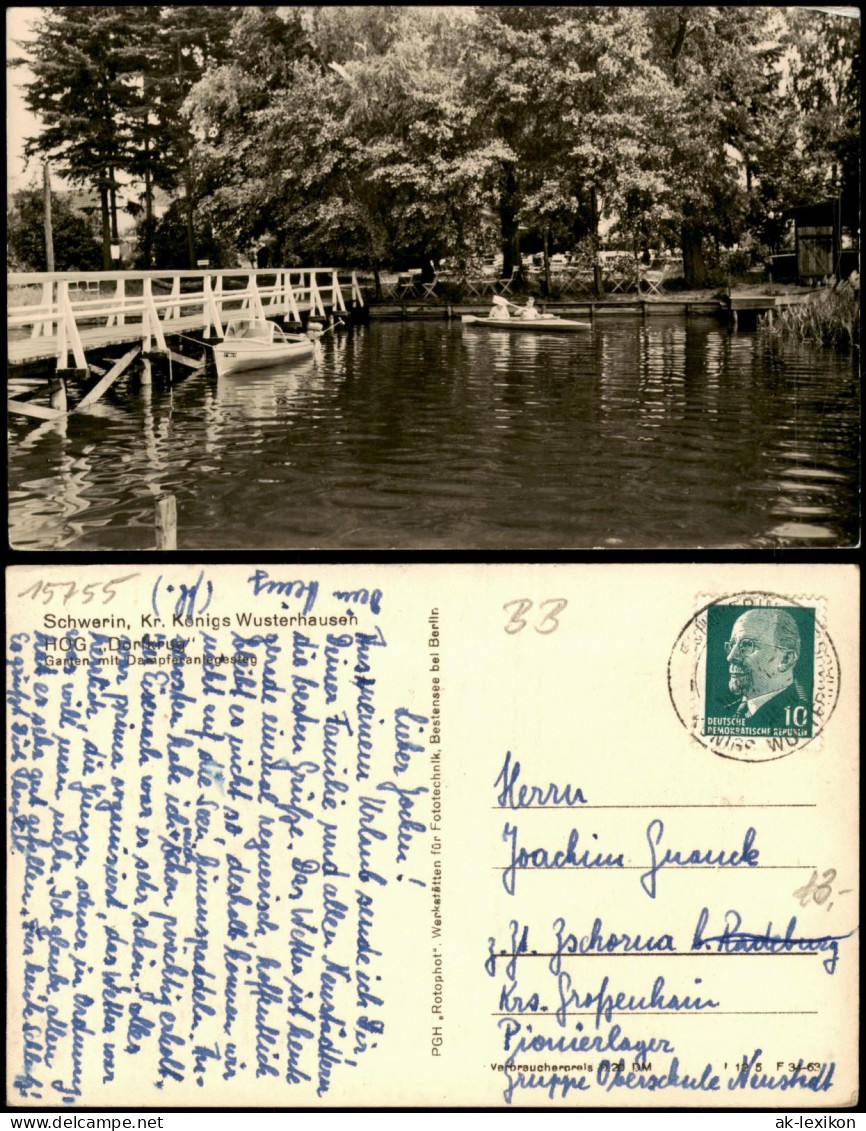 15755
Schwerin, Kr. Königs Wusterhausen
HOG „Dorfkrug"
Garten mit Dampferanlegesteg
Lieber Jochen!
Aus meinem Urlaub sende ich Dir,
Deiner Familie und allen Neustädtern
die besten Grüße. Das Wetter ist heute
gerade einmal regnerisch, hoffentlich
bleibt es nicht so, deshalb können wir
nicht auf die Seen hinauspaddeln. An-
sonsten habe ich mich schon prächtig erholt.
In Eisenach war es sehr schön, alles
prima organisiert, das Wetter war
herrlich, die Jungen schwer in Ordnung,
was will man mehr. Ich glaube, allen
hat es sehr gut gefallen.
Es grüßt Dich
Dein Heinz
PGH „Rotophot", Werkstätten für Fototechnik, Bestensee bei Berlin
BB
KÖNIGS WUSTERHAUSEN
10
DEUTSCHE
DEMOKRATISCHE REPUBLIK
Herrn
Joachim Gnauck
z. Zt. Zschorna b. Radeburg
Krs. Großenhain
Pionierlager
Gruppe Oberschule Neustadt
13,-
Verbraucherpreis 0,20 DM
F 34-63
ak-lexikon